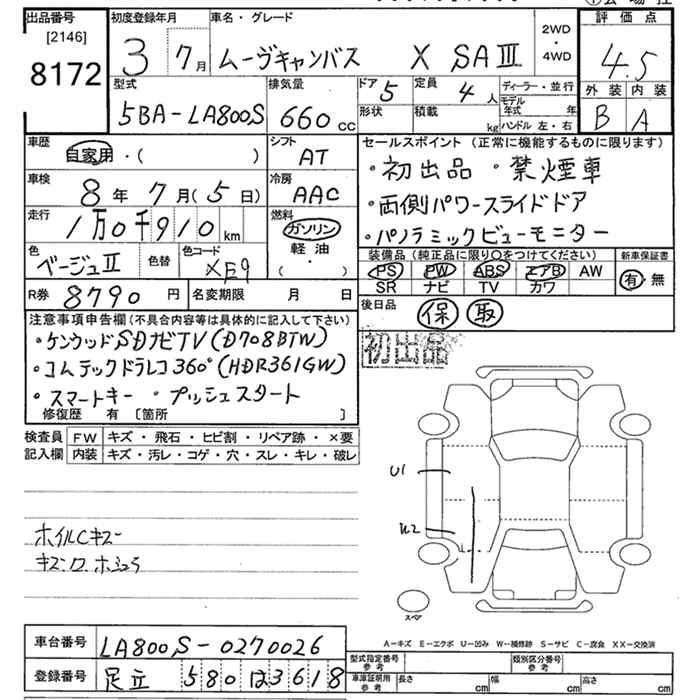 出品番号
[2146]
8172
初度登録年月
3 7月
車名・グレード
ムーヴキャンバス X SAⅢ
2WD
・
4WD
評価点
4.5
外装 内装
B A
型式
5BA-LA800S
排気量
660 cc
ドア 5
形状
定員 4 人
積載 kg
ディーラー・並行
モデル年式 年
ハンドル 左・右
車歴
自家用・( )
シフト
AT
車検
8年 7月(5日)
冷房
AAC
走行
1万0千910 km
燃料
ガソリン
軽・油
( ・ )
色
ベージュⅡ
色替
色コード
XE9
R券 8790 円
名変期限 月 日
セールスポイント (正常に機能するものに限ります)
・初出品 ・禁煙車
・両側パワースライドドア
・パノラミックビューモニター
装備品 (純正品に限り○をつけてください)
PS PW ABS エアB AW
SR ナビ TV カワ
新車保証書
有・無
後日品
保 取
初出品
注意事項申告欄 (不具合内容等は具体的に記入して下さい)
・ケンウッドSDナビTV(D708BTW)
・コムテックドラレコ360°(HDR361GW)
・スマートキー・プッシュスタート
修復歴 有 [箇所 ]
検査員 FW キズ・飛石・ヒビ割・リペア跡・×要
記入欄 内装 キズ・汚レ・コゲ・穴・スレ・キレ・破レ
ホイルCキズー
U1
W2
スペア
A-キズ E-エクボ U-凹み W-補修跡 S-サビ C-腐食 XX-交換済
車台番号 LA800S-0270026
登録番号 足立 580 ひ 3618
型式指定番号
参考
類別区分番号
参考
車庫証明用
参考
長さ cm 幅 cm 高さ cm